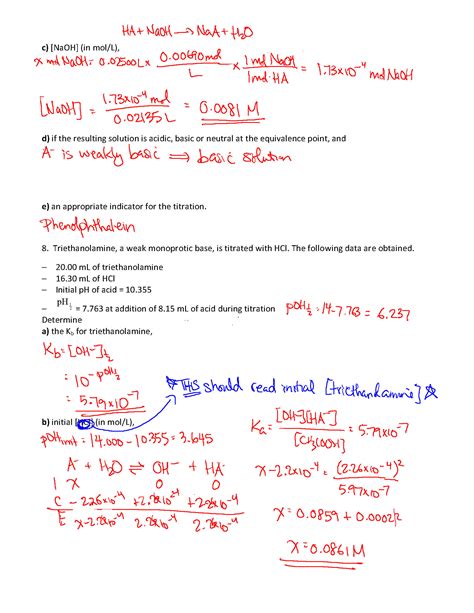 HA + NaOH → NaA + H₂O
c) [NaOH] (in mol/L),
x mol NaOH = 0.02500L x 0.00690mol / L x 1 mol NaOH / 1mol HA = 1.73x10⁻⁴ mol NaOH
[NaOH] = 1.73x10⁻⁴ mol / 0.02135 L = 0.0081 M
d) if the resulting solution is acidic, basic or neutral at the equivalence point, and
A⁻ is weakly basic ⟹ basic solution
e) an appropriate indicator for the titration.
Phenolphthalein
8. Triethanolamine, a weak monoprotic base, is titrated with HCl. The following data are obtained.
– 20.00 mL of triethanolamine
– 16.30 mL of HCl
– Initial pH of acid = 10.355
– pH½ = 7.763 at addition of 8.15 mL of acid during titration pOH½ = 14-7.763 = 6.237
Determine
a) the Kb for triethanolamine,
Kb = [OH⁻]½
= 10^-pOH½
= 5.79x10⁻⁷
THIS should read initial [triethanolamine]
b) initial [HCl] (in mol/L),
pOHinit = 14.000 - 10.355 = 3.645
Ka = [OH⁻][HA⁻] / [CH₃COOH] = 5.79x10⁻⁷
A⁻ + H₂O ⇌ OH⁻ + HA
I X 0 0
C - 2.26x10⁻⁴ +2.26x10⁻⁴ +2.26x10⁻⁴
E x-2.26x10⁻⁴ 2.26x10⁻⁴ 2.26x10⁻⁴
x-2.2x10⁻⁴ = (2.26x10⁻⁴)² / 5.97x10⁻⁷
x = 0.0859 + 0.0002
x = 0.0861M